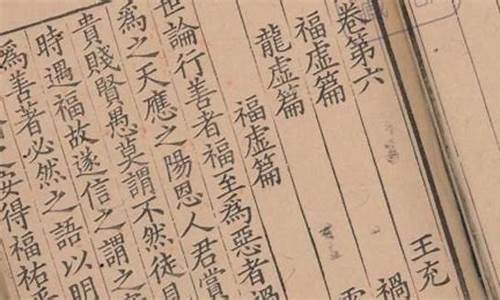 卷第六 王充
福虛篇 禍
龍虛篇
福虛篇
世論行善者福至爲惡者禍
爲之天應之陽恩人君賞
貴賤賢愚莫謂不然徒見
時遇福故遂信之謂之
爲善著必然之語以明
安得福祐